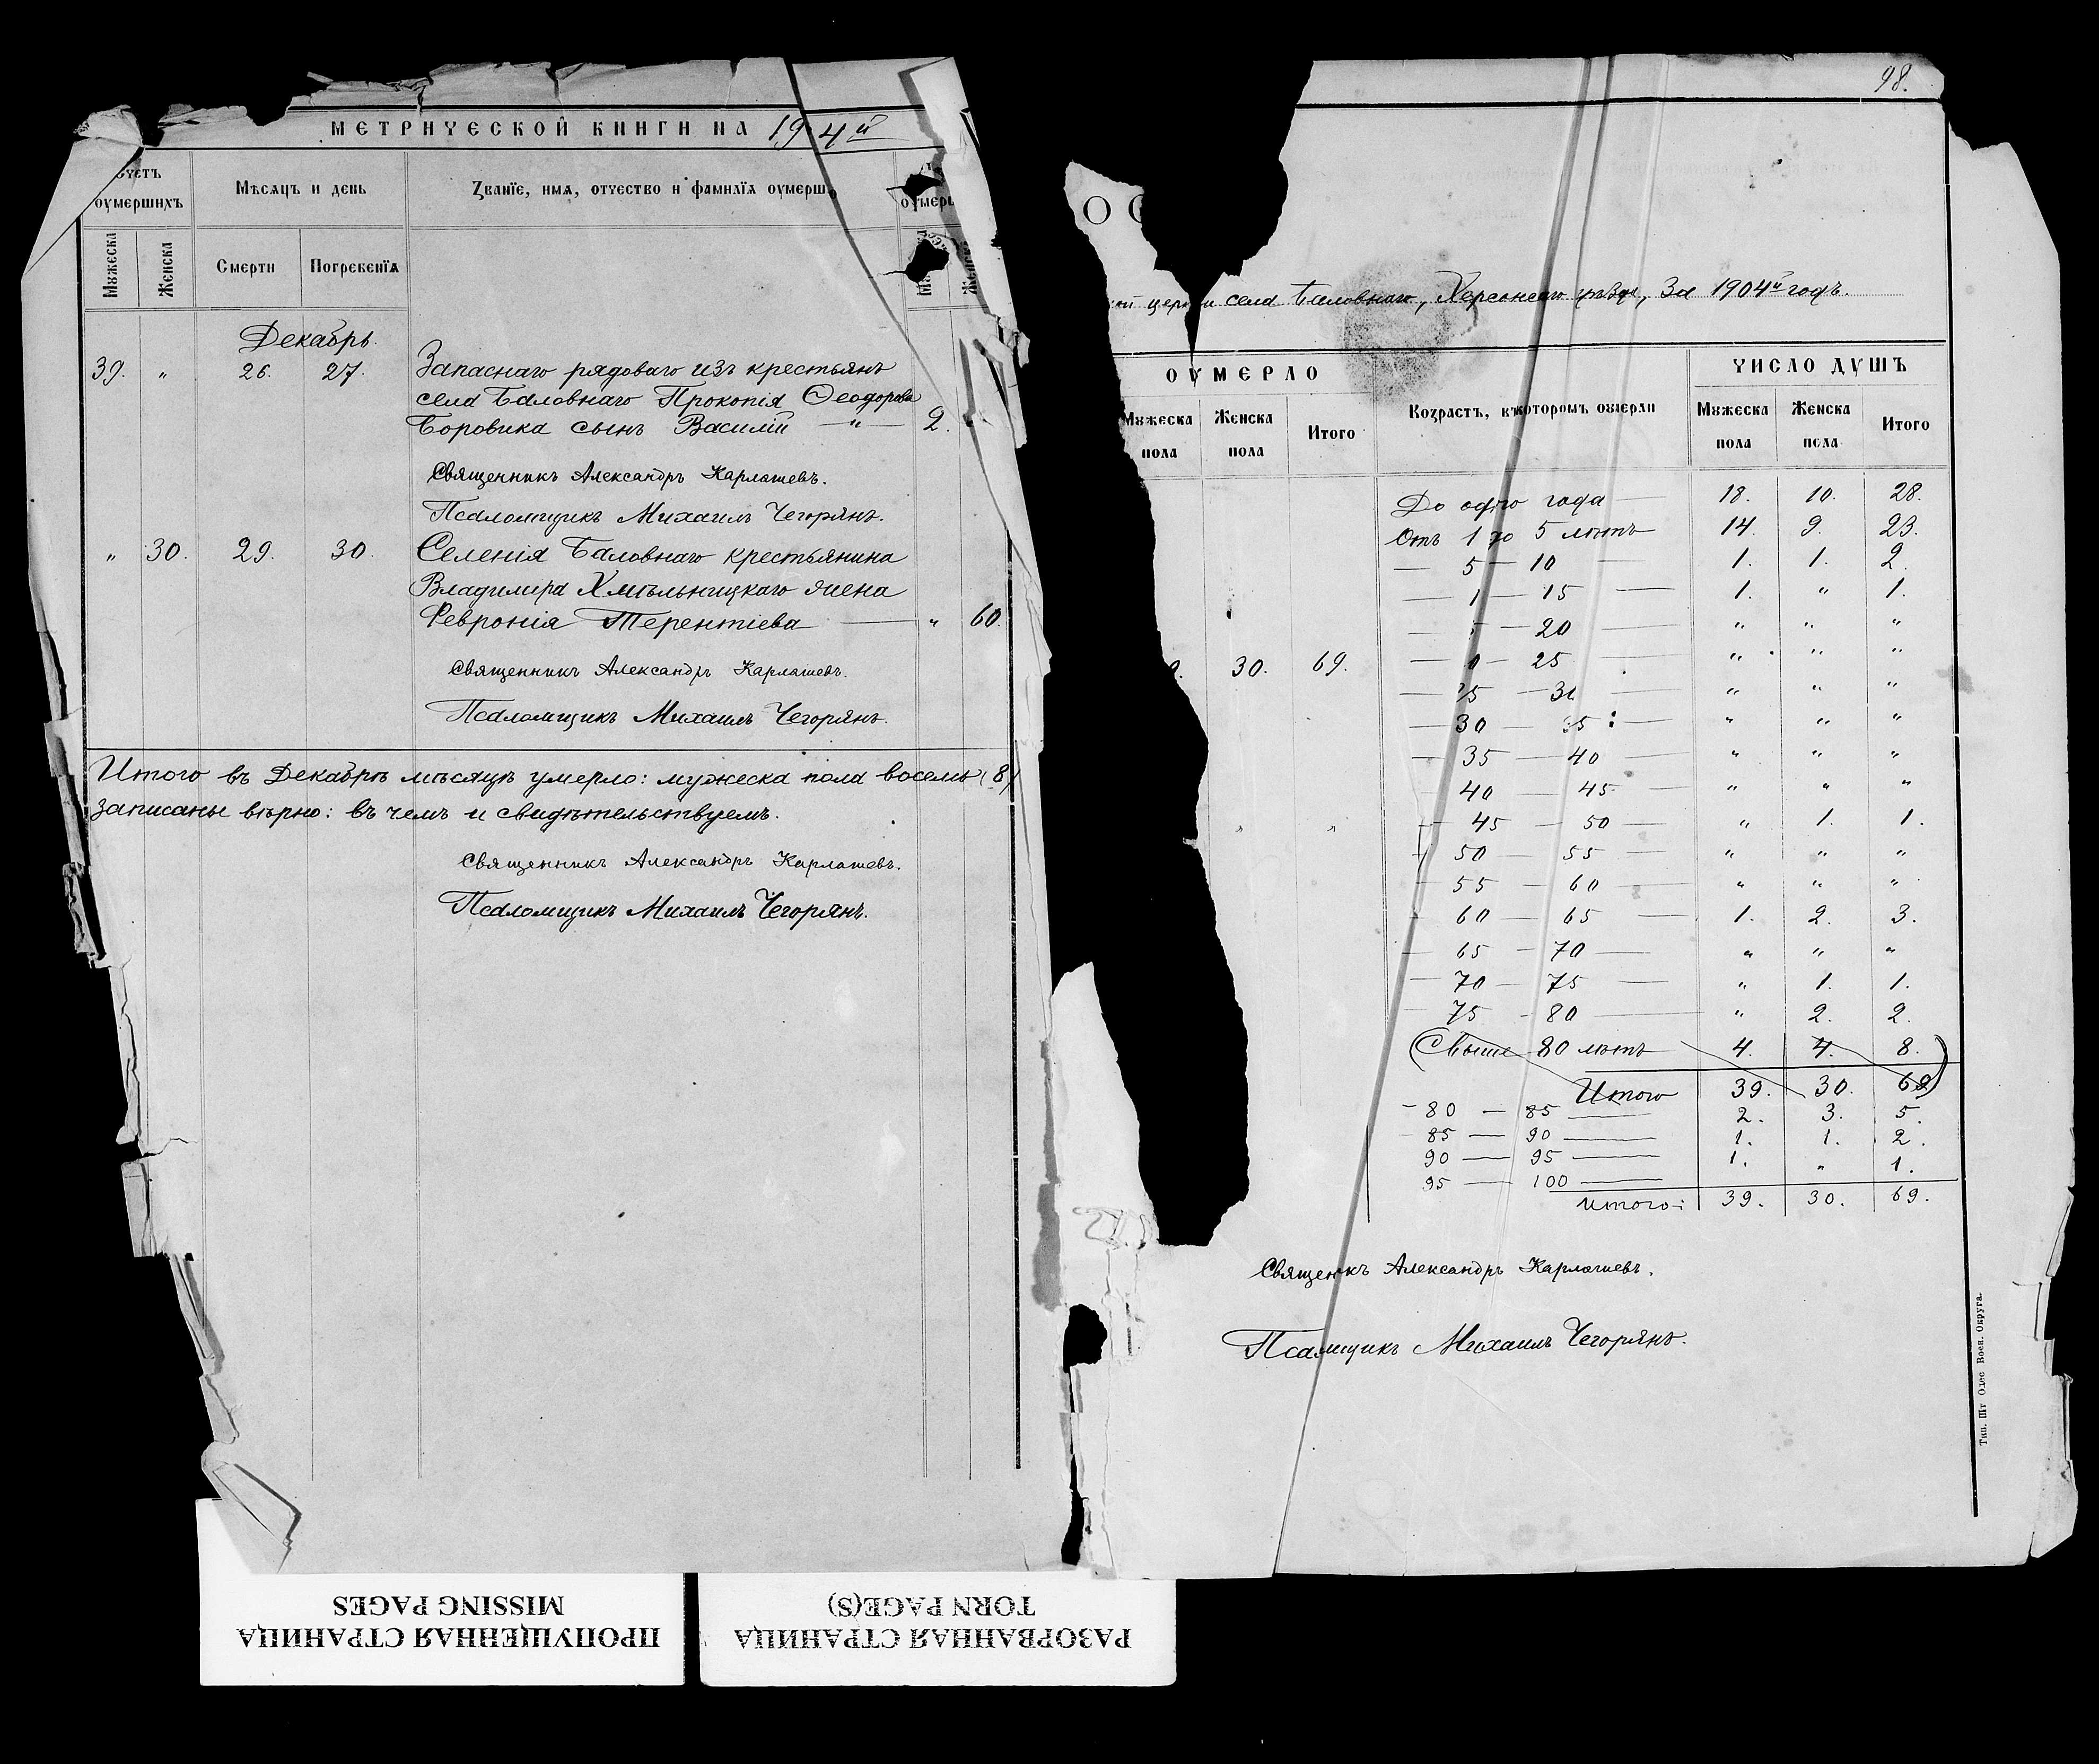 МЕТРИЧЕСКОЙ КНИГИ НА 19 4й
счетъ
оумершихъ
Мѣсяцъ и день
Званїе, имя, отчество и фамилїя оумерш
Мужеска
Женска
Смерти
Погребенїя
Декабрь.
39. " 26. 27. Запаснаго рядоваго изъ крестьянъ
села Баловнаго Прокопія Ѳеодорова
Боровика сынъ Василій — " — 2.
Священникъ Александръ Карлашевъ.
Псаломщикъ Михаилъ Чегорянъ.
" 30. 29. 30. Селенія Баловнаго крестьянина
Владимира Хмѣльницкаго жена
Февронія Терентіева — " 60.
Священникъ Александръ Карлашевъ.
Псаломщикъ Михаилъ Чегорянъ.
Итого въ Декабрѣ мѣсяцѣ умерло: мужеска пола восемь (8)
записаны вѣрно: въ чемъ и свидѣтельствуемъ.
Священникъ Александръ Карлашевъ.
Псаломщикъ Михаилъ Чегорянъ.
98.
церкви села Баловнаго, Херсонскаго уѣзда, за 1904й годъ.
ОУМЕРЛО
ЧИСЛО ДУШЪ
Мужеска пола
Женска пола
Итого
Возрастъ, въ которомъ оумерли
Мужеска пола
Женска пола
Итого
30. 69.
До одного года — 18. 10. 28.
Отъ 1 до 5 лѣтъ 14. 9. 23.
— 5 — 10 — 1. 1. 2.
— 1 — 15 — 1. " 1.
— — 20 — " " "
— 0 — 25 — " " "
— 25 — 30 — " " "
— 30 — 35 — " " "
— 35 — 40 — " " "
40 — 45 — " " "
45 — 50 — " 1. 1.
50 — 55 — " " "
55 — 60 — " " "
60 — 65 — 1. 2. 3.
65 — 70 — " " "
70 — 75 — " 1. 1.
75 — 80 — " 2. 2.
(Свыше 80 лѣтъ 4. 4. 8.)
Итого 39. 30. 69)
— 80 — 85 — 2. 3. 5.
85 — 90 — 1. 1. 2.
90 — 95 — 1. " 1.
95 — 100 —
Итого: 39. 30. 69.
Священкъ Александръ Карлашевъ.
Псамщикъ Михаилъ Чегорянъ.
Тип. Шт Одес Воен. Округа.
ПРОПУЩЕННАЯ СТРАНИЦА
MISSING PAGES
РАЗОРВАННАЯ СТРАНИЦА
TORN PAGE(S)